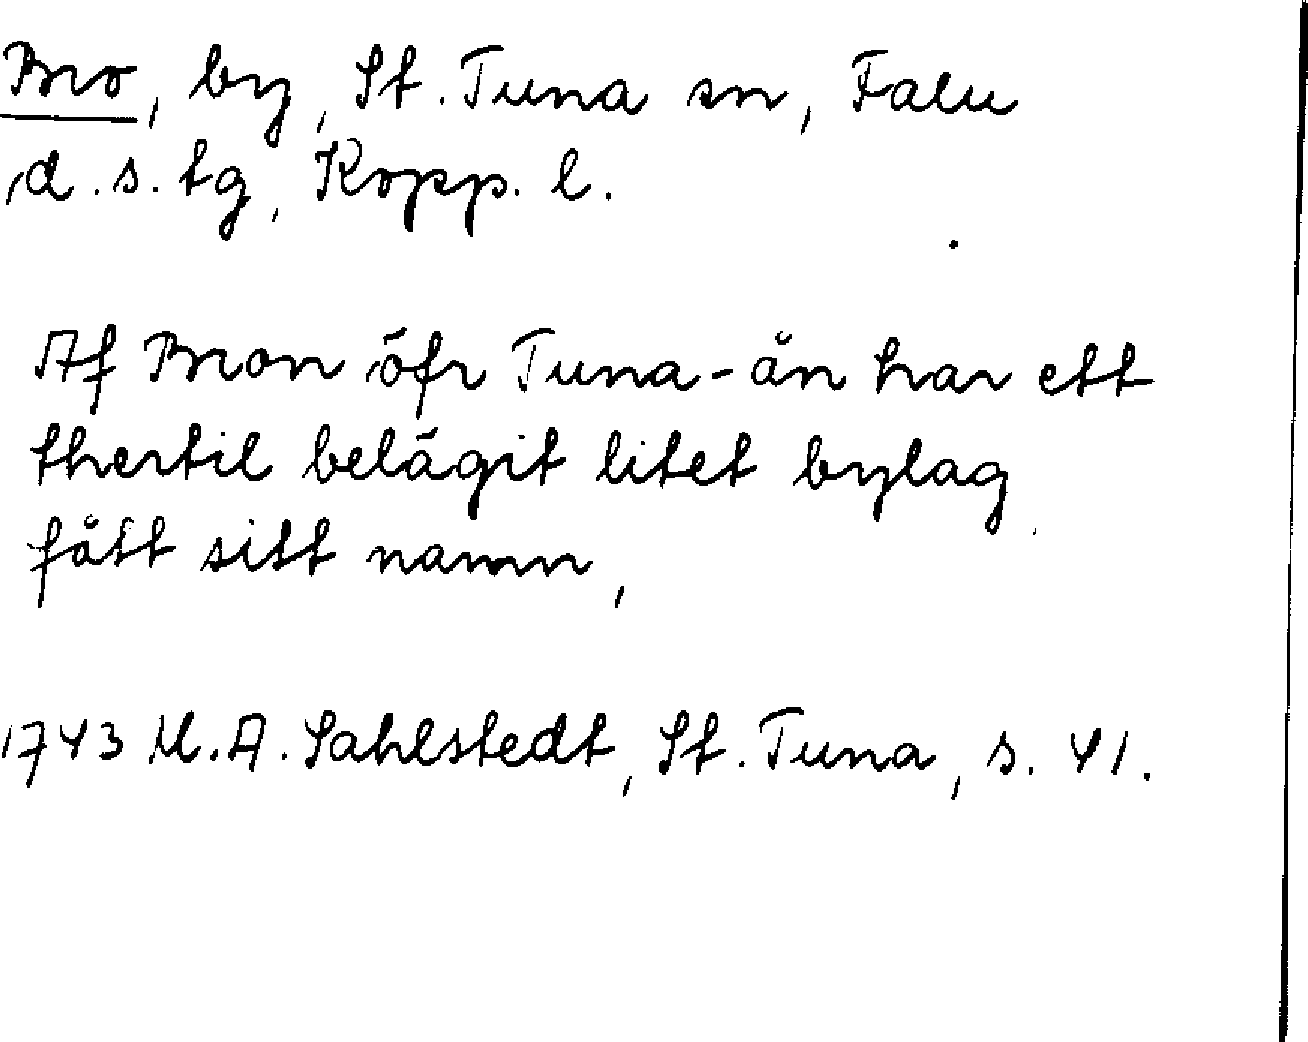 Bro, by, St. Tuna sn, Falu
d. s. tg, Kopp. l.
Af Bron öfr Tuna-ån har ett
thertil belägit litet bylag
fått sitt namn,
1743 M. A. Sahlstedt, St. Tuna, s. 41.